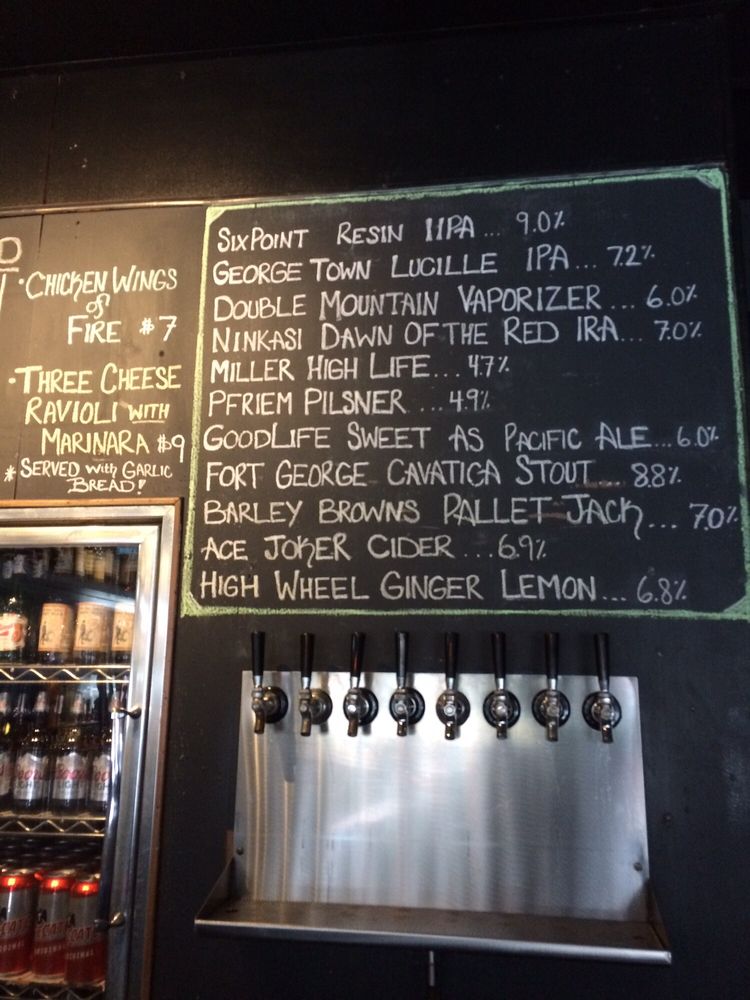 SIXPOINT RESIN IIPA ... 9.0%
GEORGE TOWN LUCILLE IPA ... 7.2%
DOUBLE MOUNTAIN VAPORIZER ... 6.0%
NINKASI DAWN OF THE RED IRA... 7.0%
MILLER HIGH LIFE... 4.7%
PFRIEM PILSNER ...4.9%
GOODLIFE SWEET AS PACIFIC ALE...6.0%
FORT GEORGE CAVATICA STOUT 8.8%
BARLEY BROWNS PALLET JACK... 7.0%
ACE JOKER CIDER ...6.9%
HIGH WHEEL GINGER LEMON... 6.8%
• CHICKEN WINGS
of
FIRE $7
• THREE CHEESE
RAVIOLI WITH
MARINARA $9
* SERVED with GARLIC
BREAD!